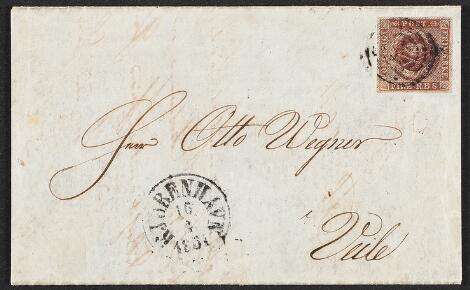 POST
FIRE R.B.S.
Herr Otto Wegner
KJØBENHAVN
16
1851
Veile